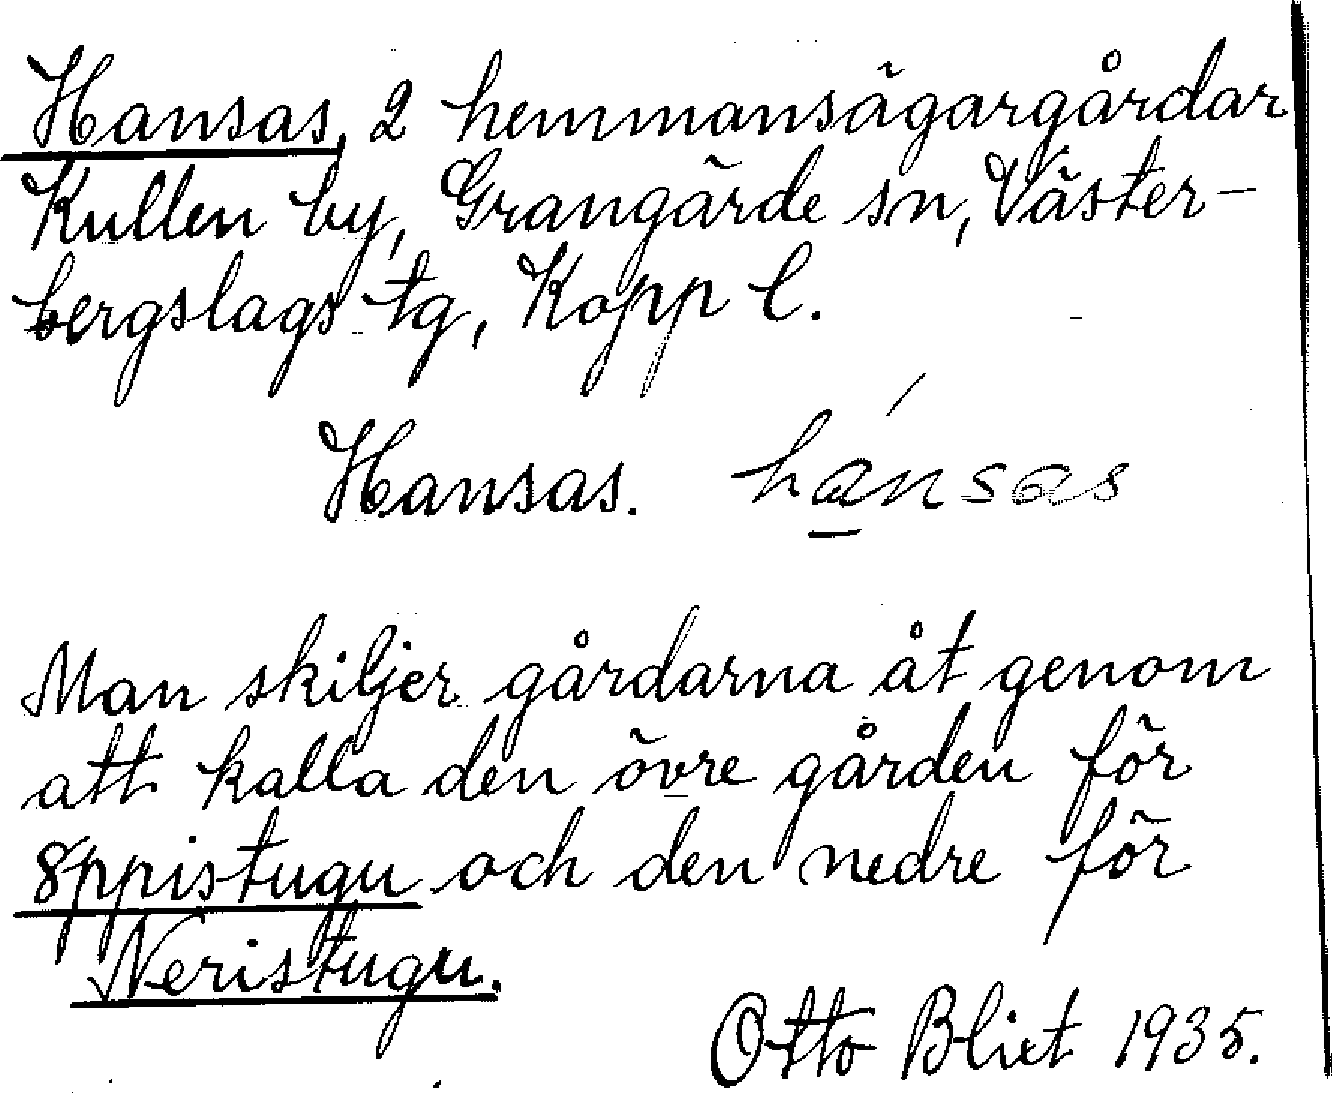 Hansas, 2 hemmansägargårdar
Kullen by, Grangärde sn, Väster-
bergslags tg, Kopp l.
Hansas. hánsas
Man skiljer gårdarna åt genom
att kalla den övre gården för
8ppistugu och den nedre för
Neristugu.
Otto Blixt 1935.